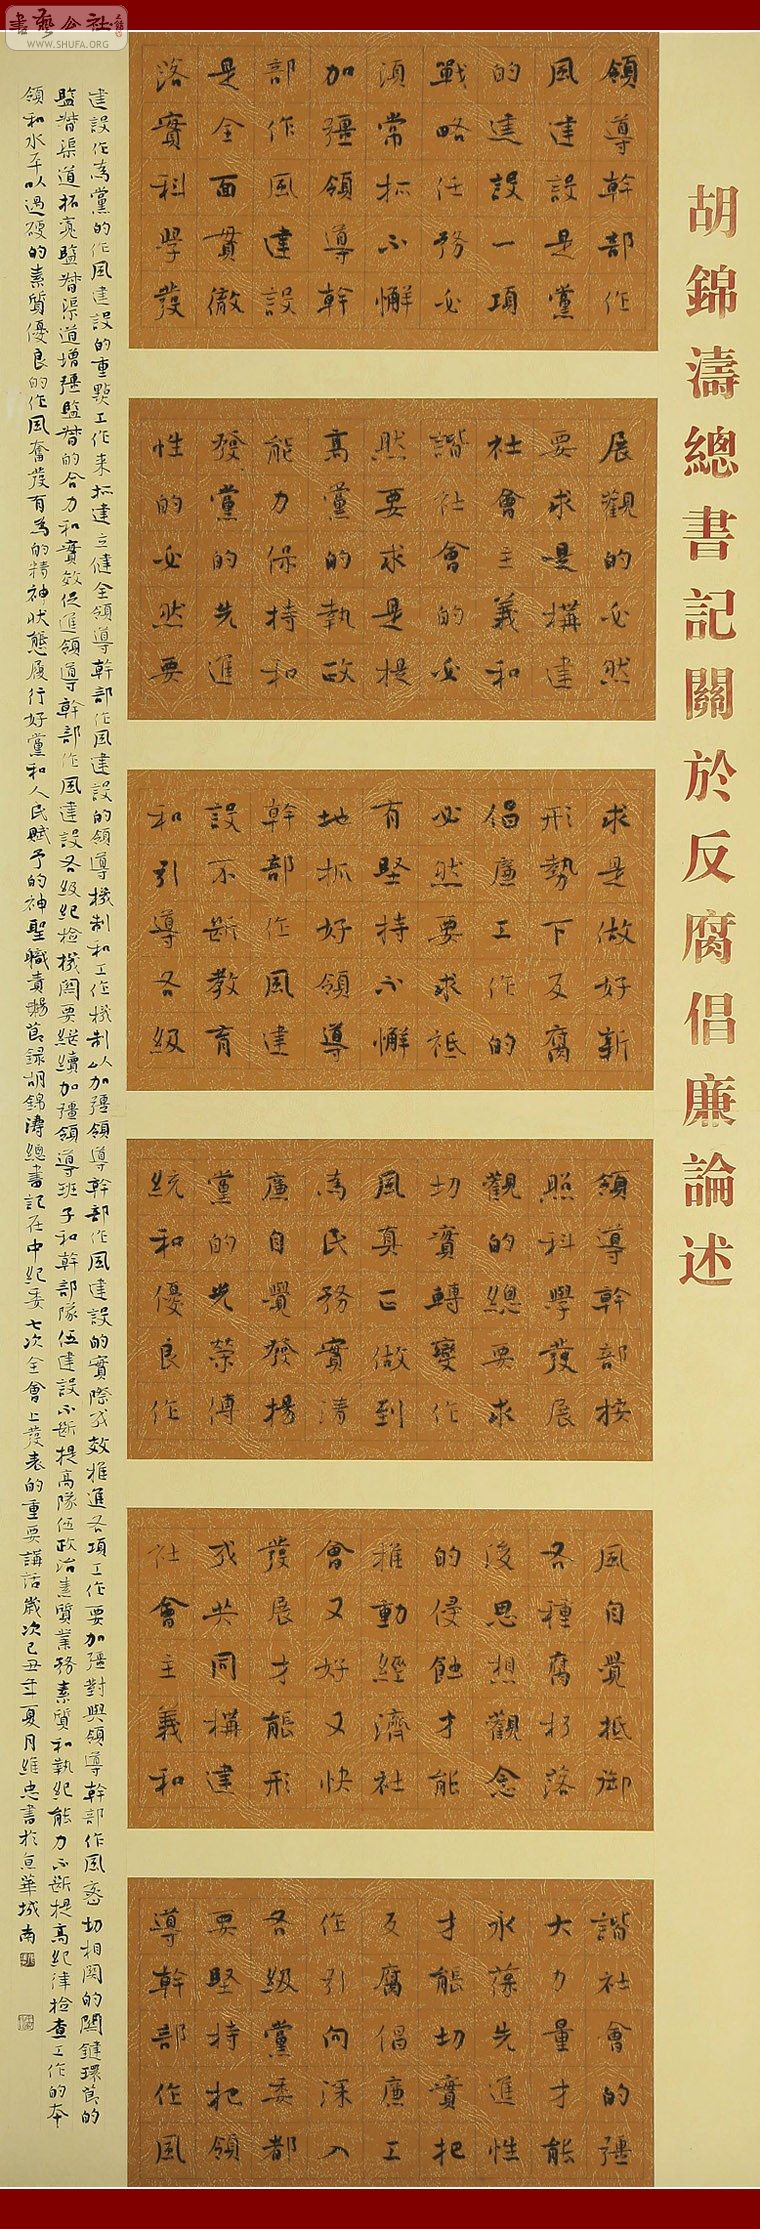 書藝公社
WWW.SHUFA.ORG
胡錦濤總書記關於反腐倡廉論述
領導幹部作
風建設是黨
的建設一項
戰略任務必
須常抓不懈
加強領導幹
部作風建設
是全面貫徹
落實科學發
展觀的必然
要求是構建
社會主義和
諧社會的必
然要求是提
高黨的執政
能力保持和
發黨的先進
性的必然要
求是做好新
形勢下反腐
倡廉工作的
必然要求祗
有堅持不懈
地抓好領導
幹部作風建
設不斷教育
和引導各級
領導幹部按
照科學發展
觀的總要求
切實轉變作
風真正做到
為民務實清
廉自覺發揚
黨的光榮傳
統和優良作
風自覺抵御
各種腐朽落
後思想觀念
的侵蝕才能
推動經濟社
會又好又快
發展才能形
成共同構建
社會主義和
諧社會的強
大力量才能
永葆先進性
才能切實把
反腐倡廉工
作引向深入
各級黨委都
要堅持把領
導幹部作風
建設作為黨的作風建設的重點工作來抓建立健全領導幹部作風建設的領導機制和工作機制以加強領導幹部作風建設的實際成效推進各項工作要加強對與領導幹部作風密切相關的關鍵環節的
監督渠道拓寬監督渠道增強監督的合力和實效促進領導幹部作風建設各級紀檢機關要繼續加強領導班子和幹部隊伍建設不斷提高隊伍政治素質業務素質和執紀能力不斷提高紀律檢查工作的本
領和水平以過硬的素質優良的作風奮發有為的精神狀態履行好黨和人民賦予的神聖職責楊節錄胡錦濤總書記在中紀委七次全會上發表的重要講話歲次己丑年夏月維忠書於京華城南